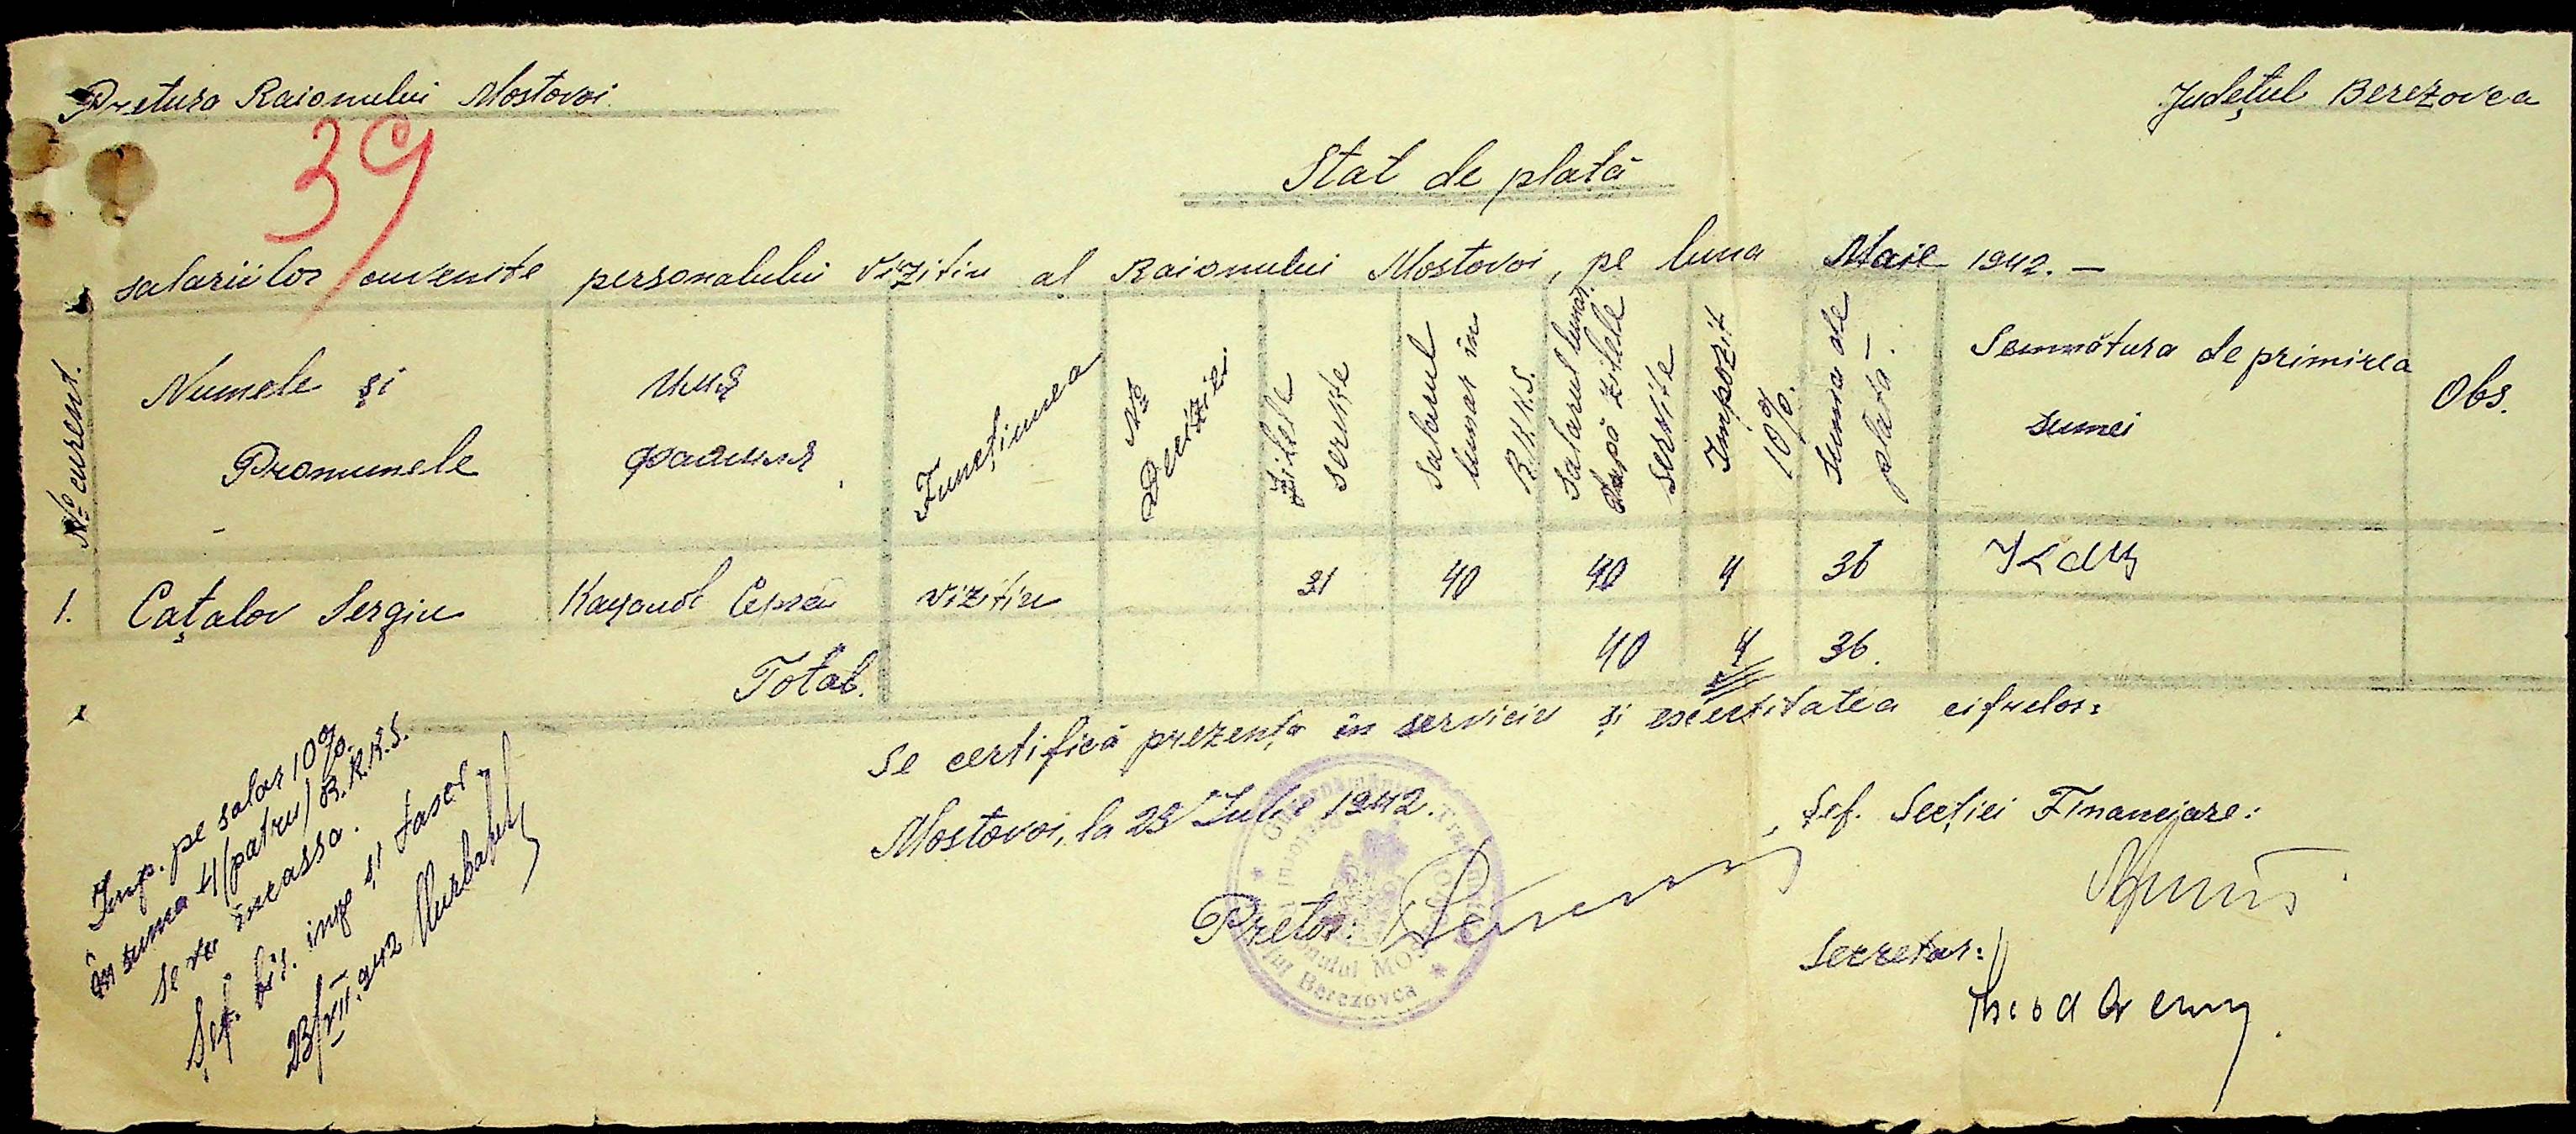 Pretura Raionului Mostovoi.
Județul Berezovca
39
Stat de plată
salariilor cuvenite personalului vizitiu al Raionului Mostovoi, pe luna Maie 1942. —
№ curent.
Numele și
Pronumele
имя
фамиля
Funcțiunea
№
Deciziei.
Zilele
servite
Salarul
lunar în
R.K.K.S.
Salarul lunar
după zilele
servite
Impozit
10%.
Suma de
plată.
Semnătura de primirea
sumei
Obs.
1. Cațalov Sergiu Кацалов Сергей vizitiu 31 40 40 4 36
Total. 40 4 36.
Se certifică prezența în serviciu și exactitatea cifrelor:
Mostovoi, la 23 Iulie 1942.
Pretor:
Șef. Secției Financjare:
Secretar:
Imp. pe salar 10%
în suma 4 (patru) R.K.K.S.
se va încassa.
Șef. bir. imp și taxer.
23/VII.942
Guvernământul Transnistriei
Județul Berezovca